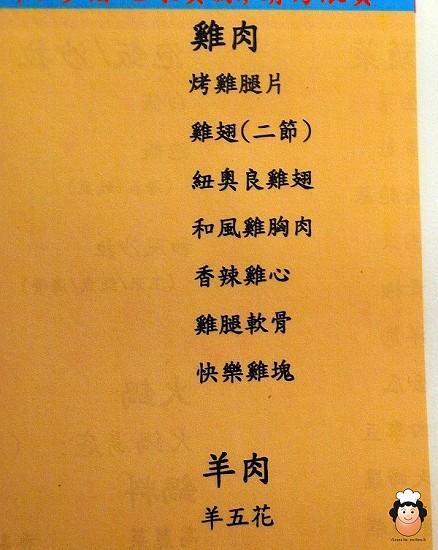 雞肉
烤雞腿片
雞翅(二節)
紐奧良雞翅
和風雞胸肉
香辣雞心
雞腿軟骨
快樂雞塊
羊肉
羊五花